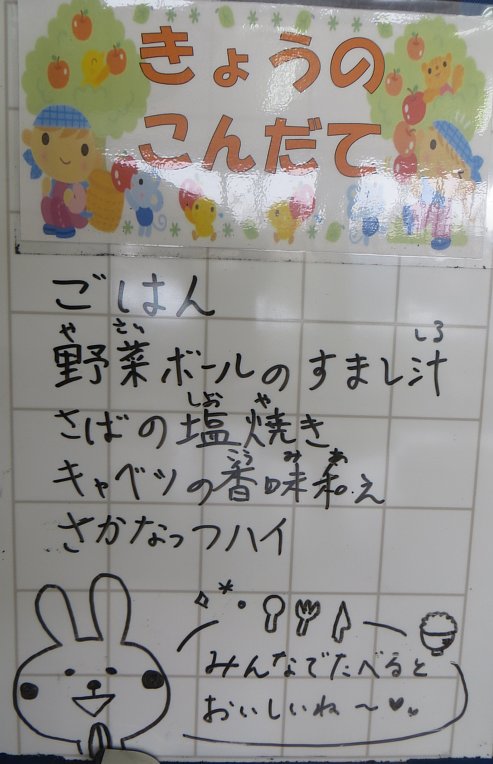 きょうの
こんだて
ごはん
や さい しろ
野菜ボールのすまし汁
しお や
さばの塩焼き
こう み あ
キャベツの香味和え
さかなっフハイ
みんなでたべると
おいしいね〜